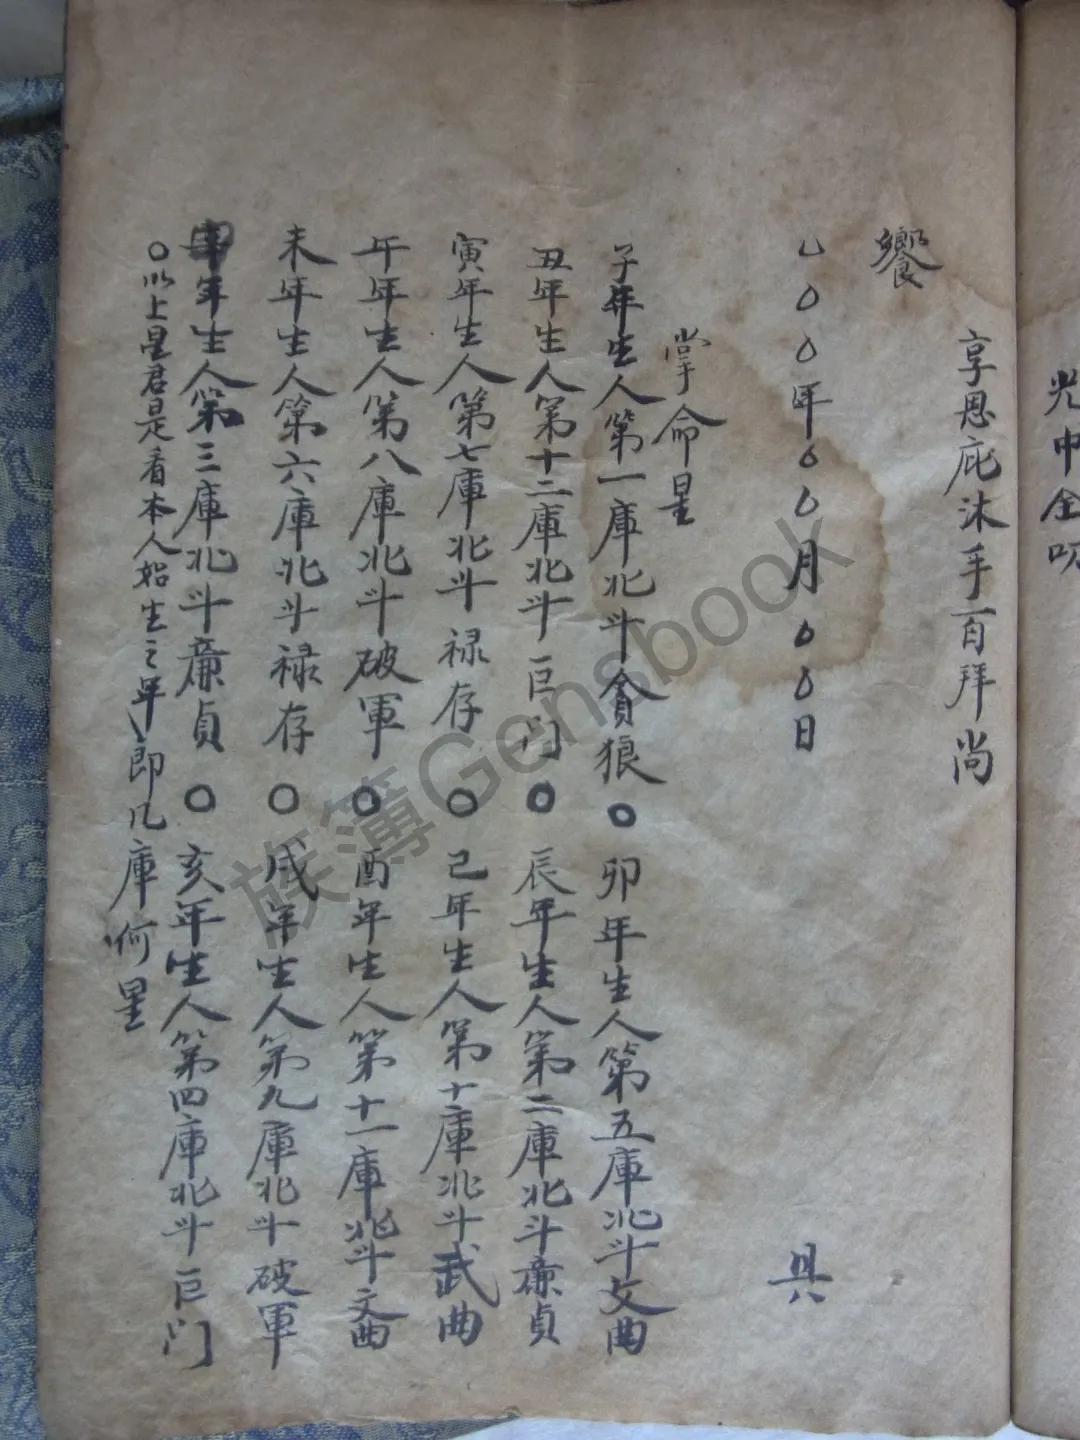 光中全叺
享恩庇沐手百拜尚
饗
年月日 具
掌命星
子年生人第一庫北斗貪狼○卯年生人第五庫北斗文曲
丑年生人第十二庫北斗巨门○辰年生人第二庫北斗亷貞
寅年生人第七庫北斗禄存○己年生人第十庫北斗武曲
午年生人第八庫北斗破軍○酉年生人第十一庫北斗文曲
未年生人第六庫北斗禄存○戌年生人第九庫北斗破軍
申年生人第三庫北斗亷貞○亥年生人第四庫北斗巨门
○以上星君是看本人始生之年即几庫何星
族簿Gensbook